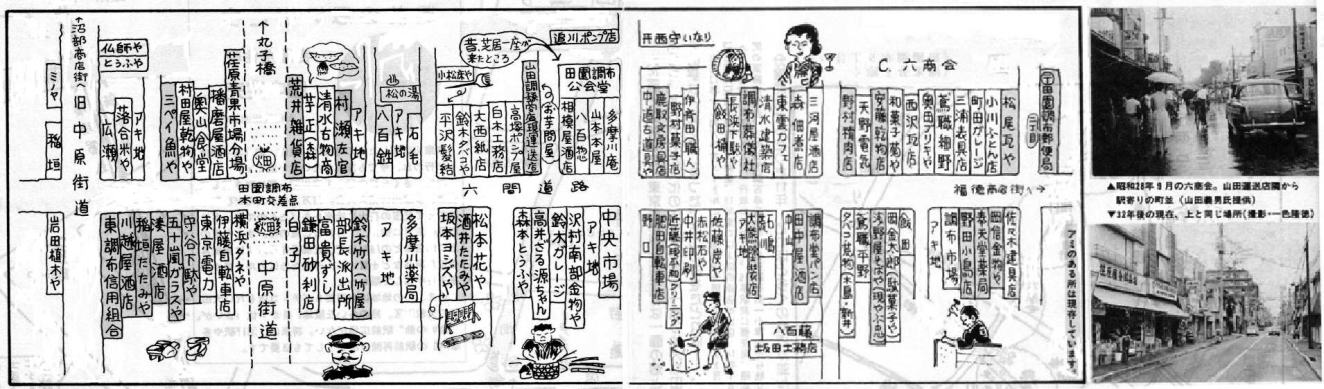 ←沼部商店街へ
旧中原街道
ミノヤ
稲垣
仏師や
とうふや
広瀬
落合米や
アキ地
三ペイ魚や
村田屋乾物や
奥山食堂
播磨屋酒店
荏原青果市場分場
↑丸子橋
畑
荒井雑貨店
芋正(森)
清水古物商
村瀬左官
八百鉄
アキ地
石毛
松の湯
小松庵や
平沢髪結
鈴木タバコや
大西紙店
白木工務店
高塚ポンプ屋
山田調布荷扱運送店
昔、芝居一座が
来たところ
(お芋問屋)
相模屋酒店
八百惣
山本本屋
多摩川庵
田園調布
公会堂
追川ポンプ店
田園調布
本町交差点
六間道路
岩田植木や
東調布信用組合
川越屋酒店
稲垣たたみや
湊屋酒店
五十嵐ガラスや
守谷下駄や
東京電力
伊藤自転車店
横浜タネや
秋田
中原街道
白子
鎌田砂利店
富貴ずし
部長派出所
鈴木竹八(竹屋)
アキ地
多摩川薬局
坂本ヨシズや
酒井たたみや
松本花や
森本とうふや
高井ざる源ちゃん
鈴木ガレージ
沢村南部金物や
アキ地
中央市場
井西守いなり
中道古道具や
鹿取文房具店
野村菓子店
伊斉田(職人)
飯田桶や
長浜下駄や
調布葬儀社
清水建築
東雲カフェー
森佃煮店
三河屋酒店
C.六商会
野村精肉店
天野電気
安藤乾物や
和菓子菊や
西沢瓦店
奥田ブリキや
鳶職細野
三浦表具店
町田ガレージ
小川ふとん店
松尾瓦や
二丁目
田園調布郵便局
福徳商会街へ→
野口
肥田自転車店
近藤洋和クリーニング
中井印刷
赤松石や
佐藤炭や
アキ地
石川
中山
田中屋酒店
調布パン店
八百福
坂田工務店
タバコ荒物(木島・新井)
鳶職平野
浅野屋そばや(現やぶ忠)
岡金太郎(駄菓子や)
飯田
アキ地
調布市場
野田小鳥店
春天堂薬局
岡信金物や
佐々木建具店
▲昭和28年9月の六商会。山田運送店隣から
駅寄りの町並(山田義男氏提供)
▼32年後の現在、上と同じ場所(撮影・一色隆徳)
アミのある所は現存しています。